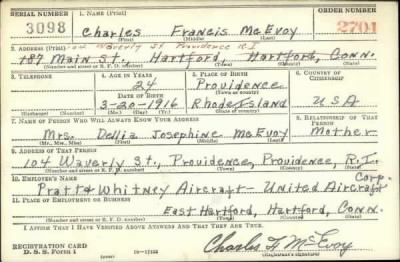 SERIAL NUMBER
1. NAME (Print)
ORDER NUMBER
3098
Charles Francis McEvoy
2704
(First) (Middle) (Last)
2. ADDRESS (Print) 104 Waverly St Providence R.I
187 Main St. Hartford, Hartford, Conn.
(Number and street or R. F. D. number) (Town) (County) (State)
3. TELEPHONE
4. AGE IN YEARS
5. PLACE OF BIRTH
6. COUNTRY OF CITIZENSHIP
24
Providence
DATE OF BIRTH
(Town or county)
3-20-1916
Rhode Island
USA
(Mo.) (Day) (Yr.)
(State or country)
7. NAME OF PERSON WHO WILL ALWAYS KNOW YOUR ADDRESS
8. RELATIONSHIP OF THAT PERSON
Mrs. Dellia Josephine McEvoy
Mother
(Mr., Mrs., Miss) (First) (Middle) (Last)
9. ADDRESS OF THAT PERSON
104 Waverly St., Providence, Providence, R.I.
(Number and street or R. F. D. number) (Town) (County) (State)
10. EMPLOYER'S NAME
Corp.
Pratt & Whitney Aircraft - United Aircraft
11. PLACE OF EMPLOYMENT OR BUSINESS
East Hartford, Hartford, Conn.
(Number and street or R. F. D. number) (Town) (County) (State)
I AFFIRM THAT I HAVE VERIFIED ABOVE ANSWERS AND THAT THEY ARE TRUE.
REGISTRATION CARD
D. S. S. Form 1
Charles F McEvoy
(Registrant's signature)